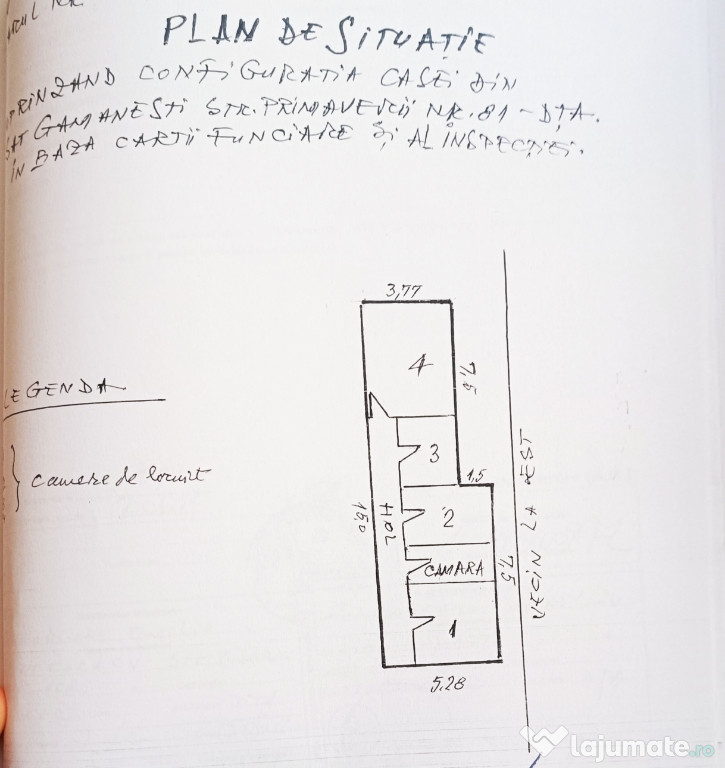 PLAN DE SITUAȚIE
PRINZAND CONFIGURATIA CASEI DIN
SAT GAMANESTI STR. PRIMAVERII NR. 81 - DȚA.
ÎN BAZA CARTII FUNCIARE ȘI AL INSPECȚIEI.
3,77
4
7,5
LEGENDA
3
1,5
camere de locuit
HOL
15,0
2
VECIN LA VEST
CAMARA
7,5
1
5,28
lajumate.ro